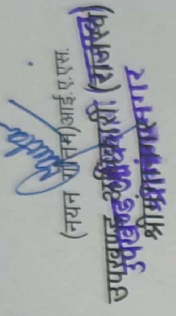 (नयन गौतम)आई.ए.एस.
उपखण्ड अधिकारी (राजस्व)
श्रीगंगानगर